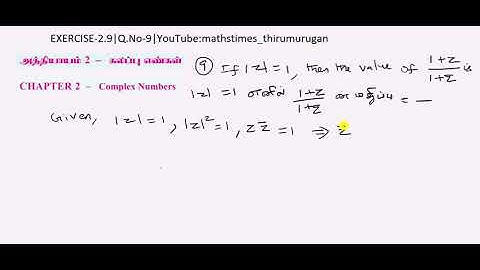 EXERCISE-2.9|Q.No-9|YouTube:mathstimes_thirumurugan
அத்தியாயம் 2 – கலப்பு எண்கள்
CHAPTER 2 – Complex Numbers
⑨ If |z| = 1, then the value of (1+z)/(1+z̄) is
|z| = 1 எனில் (1+z)/(1+z̄) ன் மதிப்பு = —
Given, |z| = 1, |z|² = 1, z z̄ = 1 ⇒ z̄